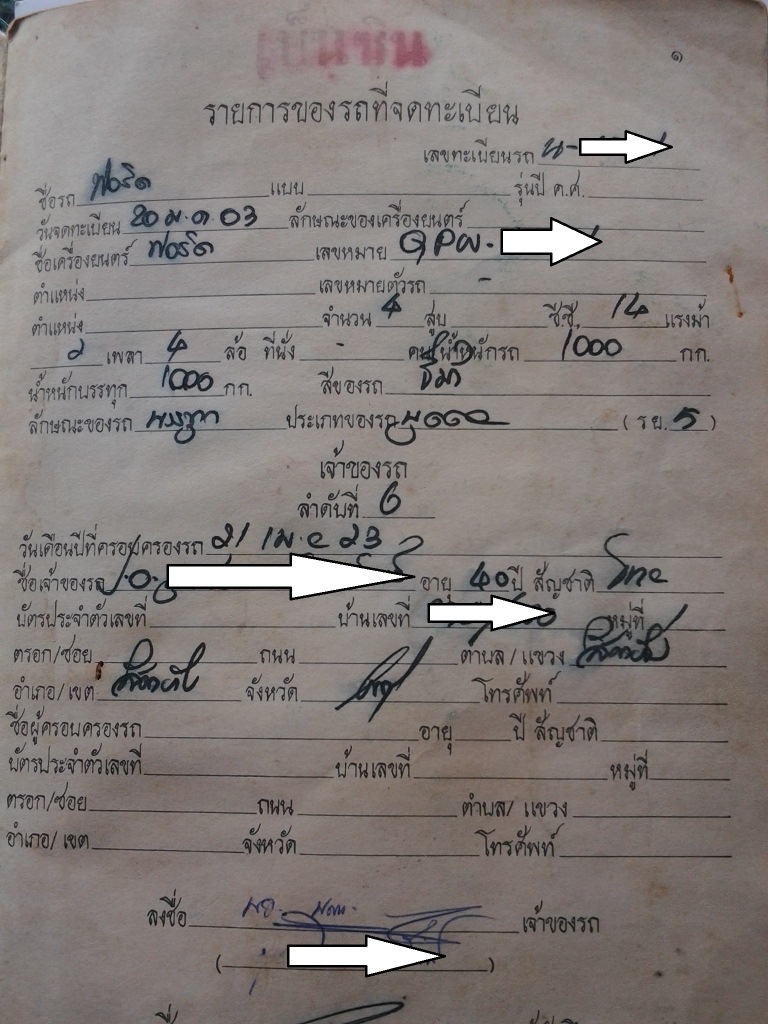 เบ็นซิน
๑
รายการของรถที่จดทะเบียน
เลขทะเบียนรถ น-
ชื่อรถ ฟอร์ด แบบ รุ่นปี ค.ศ.
วันจดทะเบียน 20 ม.ค. 03 ลักษณะของเครื่องยนต์
ชื่อเครื่องยนต์ ฟอร์ด เลขหมาย
ตำแหน่ง เลขหมายตัวรถ -
ตำแหน่ง จำนวน 4 สูบ ซี.ซี. 14 แรงม้า
2 เพลา 4 ล้อ ที่นั่ง - คน น้ำหนักรถ 1000 กก.
น้ำหนักบรรทุก 1000 กก. สีของรถ
ลักษณะของรถ บรรทุก ประเภทของรถ (รย. 5)
เจ้าของรถ
ลำดับที่ 6
วันเดือนปีที่ครอบครองรถ 21 เม.ย 23
ชื่อเจ้าของรถ อายุ 40 ปี สัญชาติ ไทย
บัตรประจำตัวเลขที่ บ้านเลขที่ หมู่ที่
ตรอก/ซอย ถนน ตำบล/แขวง
อำเภอ/เขต จังหวัด โทรศัพท์
ชื่อผู้ครอบครองรถ อายุ ปี สัญชาติ
บัตรประจำตัวเลขที่ บ้านเลขที่ หมู่ที่
ตรอก/ซอย ถนน ตำบล/แขวง
อำเภอ/เขต จังหวัด โทรศัพท์
ลงชื่อ เจ้าของรถ
( )